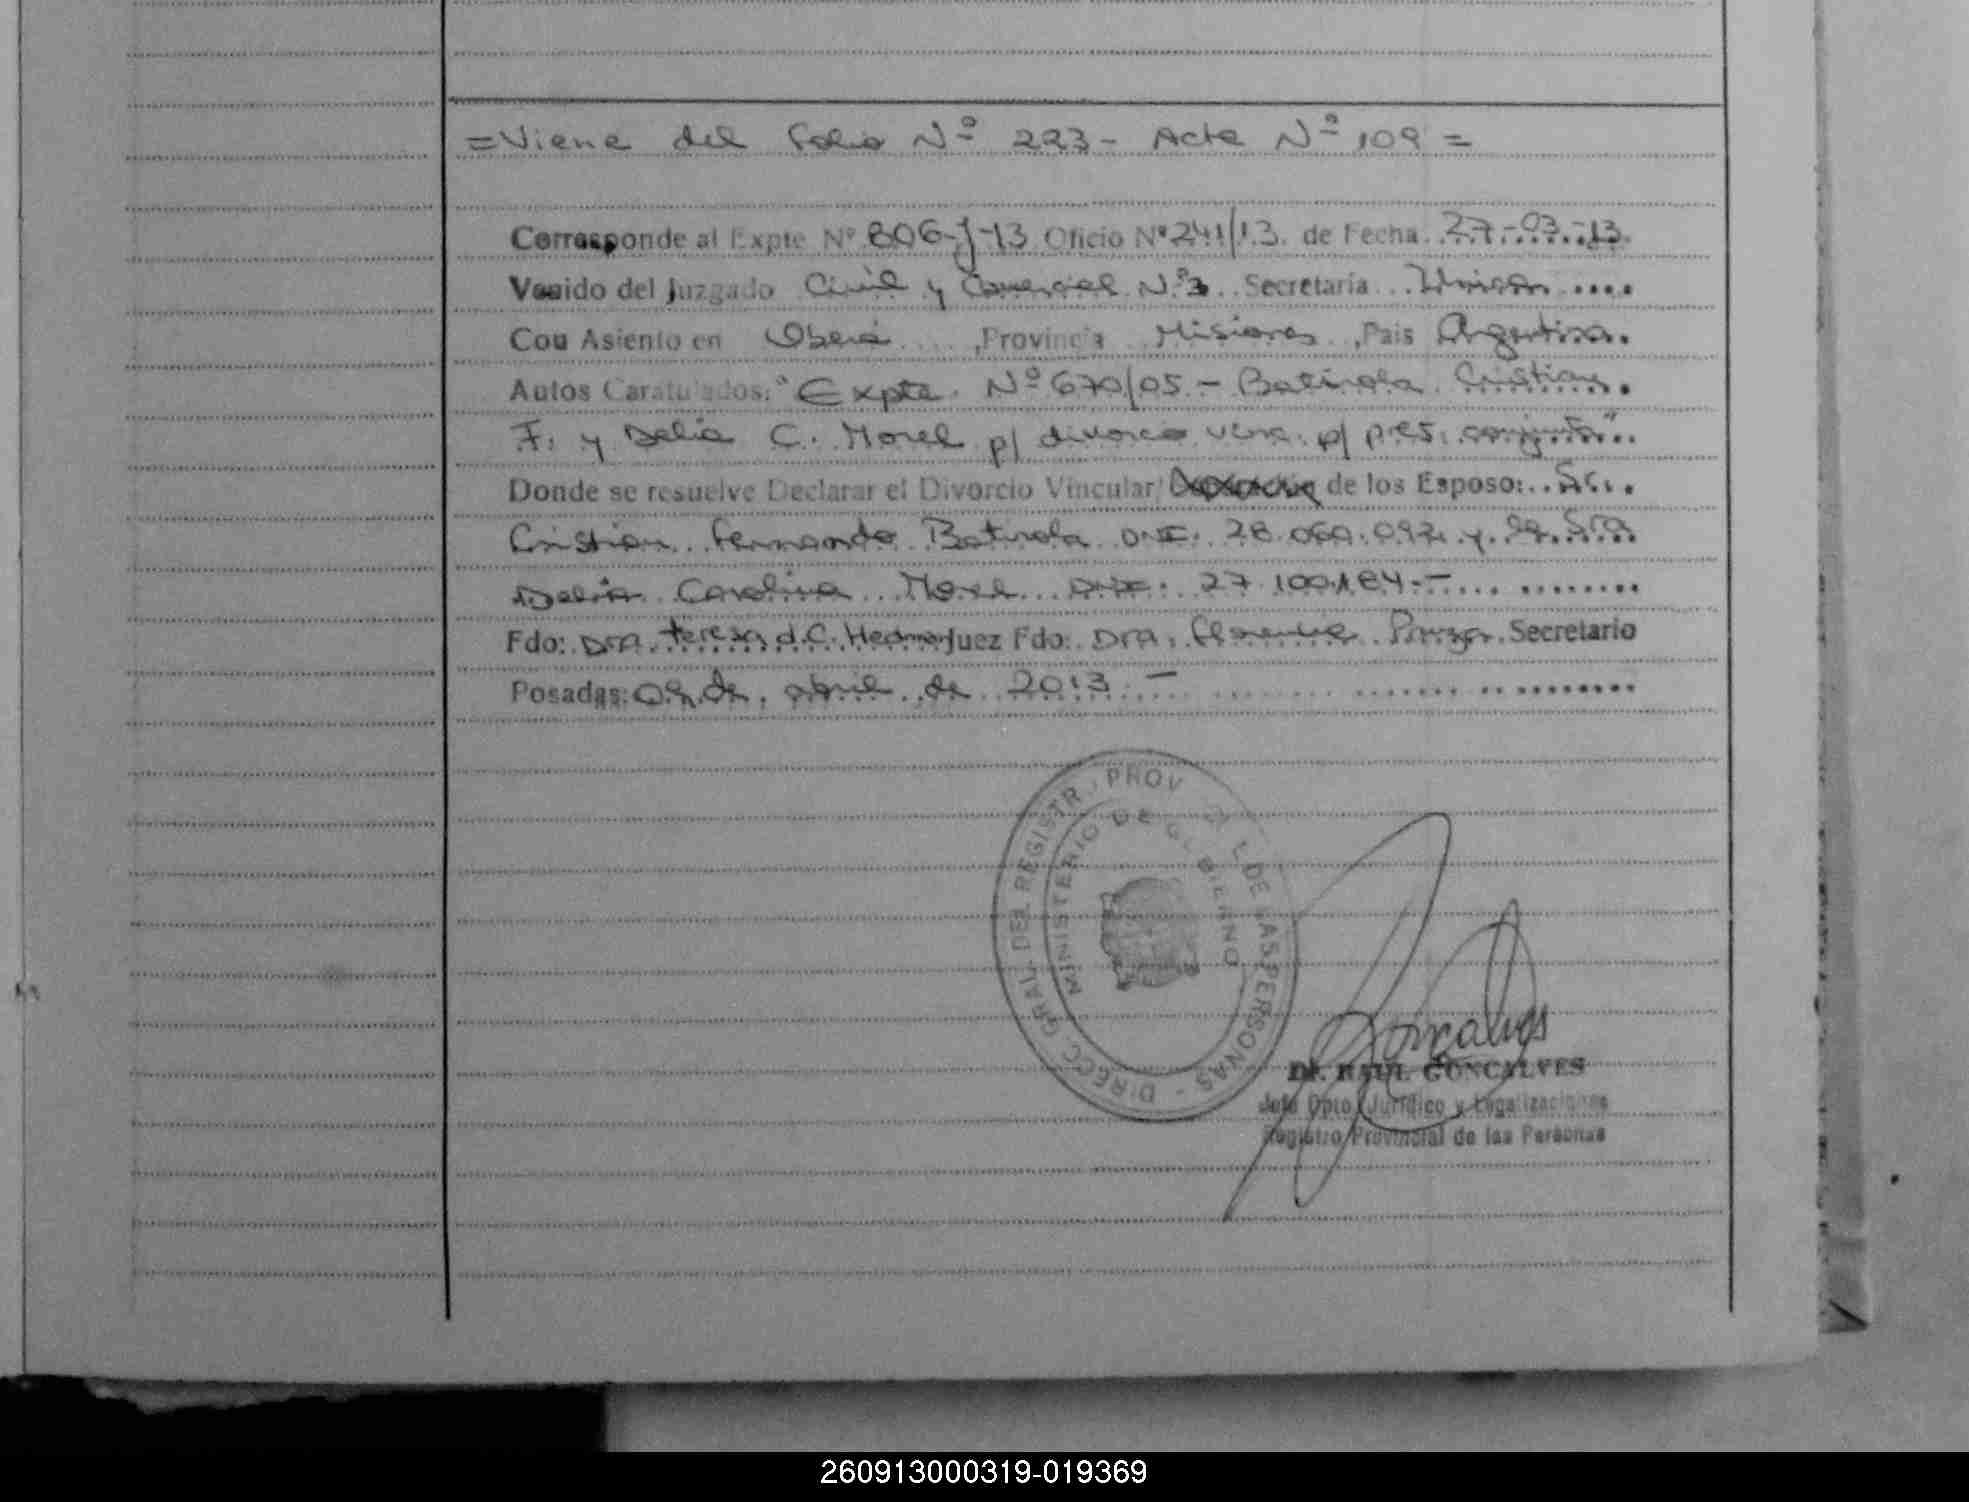 =Viene del Folio Nº 223- Acta Nº 109=
Corresponde al Expte Nº 806-J-13 Oficio Nº 241/13. de Fecha 27-03-13.
Venido del Juzgado Civil y Comercial Nº3 Secretaria Unica
Con Asiento en Oberá, Provincia Misiones, Pais Argentina.
Autos Caratulados: "Expte. Nº 670/05.- Batirola Cristian
F. y Delia C. Morel p/ divorcio vinc. p/ pres. conjunta"
Donde se resuelve Declarar el Divorcio Vincular/ de los Esposo: Sr.
Cristian Fernando Batirola DNI. 28.060.092. y la Sra
Delia Carolina Morel DNI. 27.100.184.-
Fdo: Dra. teresa d.C. Juez Fdo: Dra. Florencia Secretario
Posadas: de abril de 2013.-
DIRECC. GRAL. DEL REGISTR. PROV DE LAS PERSONAS -
MINISTERIO DE GOBIERNO
Goncalves
Dr. RAUL GONCALVES
Jefe Dpto. Jurídico y Legalizaciones
Registro Provincial de las Personas
260913000319-019369